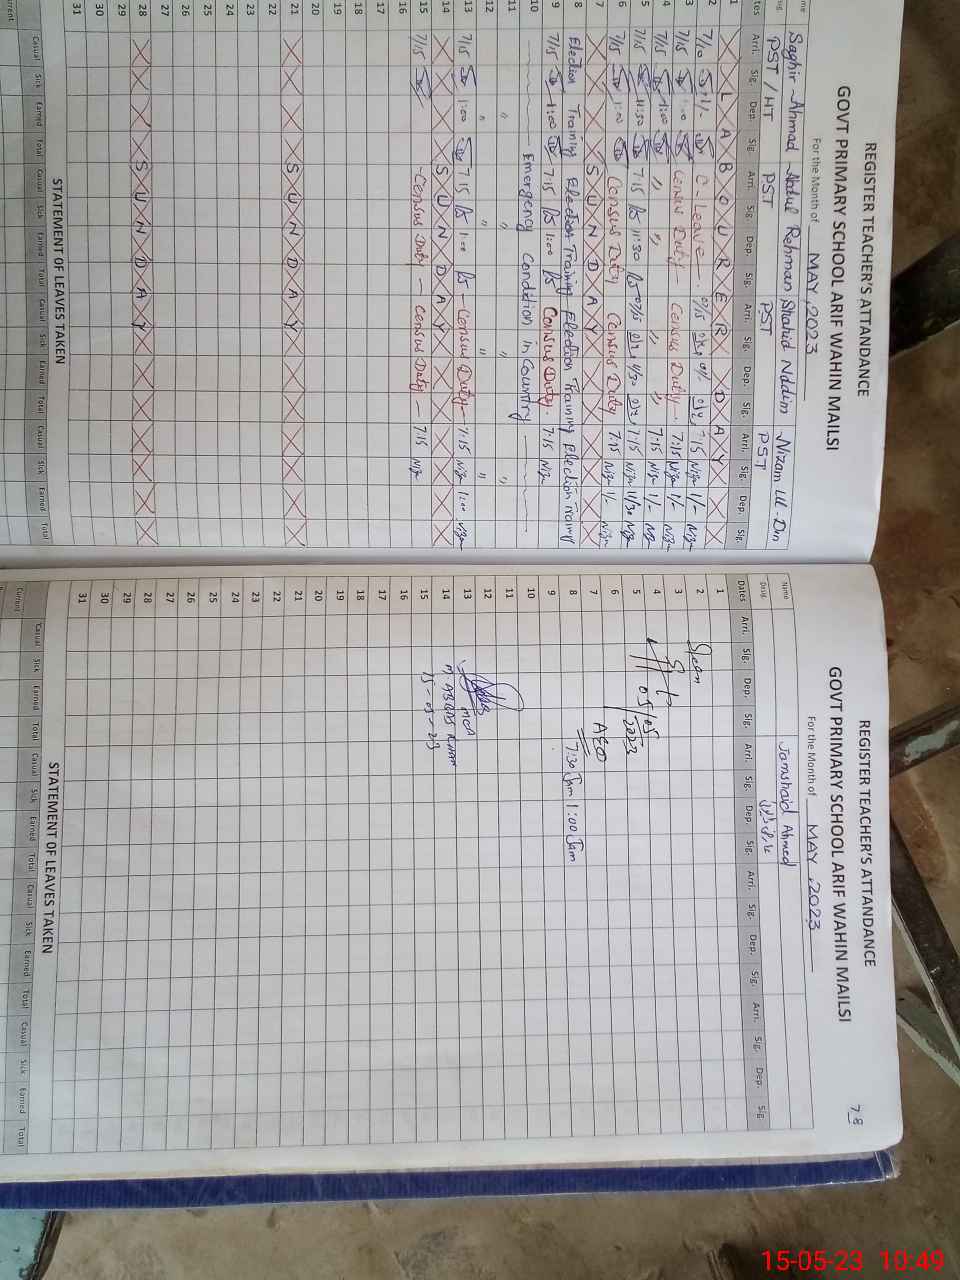 REGISTER TEACHER'S ATTANDANCE
GOVT PRIMARY SCHOOL ARIF WAHIN MAILSI
For the Month of MAY, 2023
Saghir Ahmad Abdul Rehman Shahid Nddim Nizam Ul-Din
PST / HT PST PST PST
Dates Arri. Sig. Dep. Sig. Arri. Sig. Dep. Sig. Arri. Sig. Dep. Sig. Arri. Sig. Dep. Sig.
1 L A B O U R E R D A Y
2 7/10 C-Leave 7:15 1/-
3 7/15 1:00 Census Duty - Census Duty 7:15 1/-
4 7/15 1:00 〃 〃 〃 〃 7:15 1/-
5 7/15 11:30 7:15 11:30 7:15 11/30
6 7/15 1:00 Census Duty Census Duty 7:15 1/-
7 S U N D A Y
8 Election Training Election Training Election Training Election Training
9 7/15 1:00 7:15 1:00 Census Duty. 7:15
10 Emergency Condition in Country
11 〃 〃 〃 〃
12 〃 〃 〃 〃
13 7/15 1:00 7:15 1:00 - Census Duty - 7:15 1:00
14 S U N D A Y
15 7/15 - Census Duty - Census Duty - 7:15
16
17
18
19
20
21 S U N D A Y
22
23
24
25
26
27
28 S U N D A Y
29
30
31
STATEMENT OF LEAVES TAKEN
Casual Sick Earned Total Casual Sick Earned Total Casual Sick Earned Total Casual Sick Earned Total
REGISTER TEACHER'S ATTANDANCE
78
GOVT PRIMARY SCHOOL ARIF WAHIN MAILSI
For the Month of MAY, 2023
Name Jamshaid Ahmed
Desig.
Dates Arri. Sig. Dep. Sig. Arri. Sig. Dep. Sig. Arri. Sig. Dep. Sig. Arri. Sig. Dep. Sig.
1
2 Seen
3
4
5 05/05/2023
6
7 AEO
8 7:30 Jam 1:00 Jam
9
10
11
12
13 MEA
14 M. ABBAS KHAN
15 15-05-23
16
17
18
19
20
21
22
23
24
25
26
27
28
29
30
31
STATEMENT OF LEAVES TAKEN
Casual Sick Earned Total Casual Sick Earned Total Casual Sick Earned Total Casual Sick Earned Total
Current
15-05-23 10:49